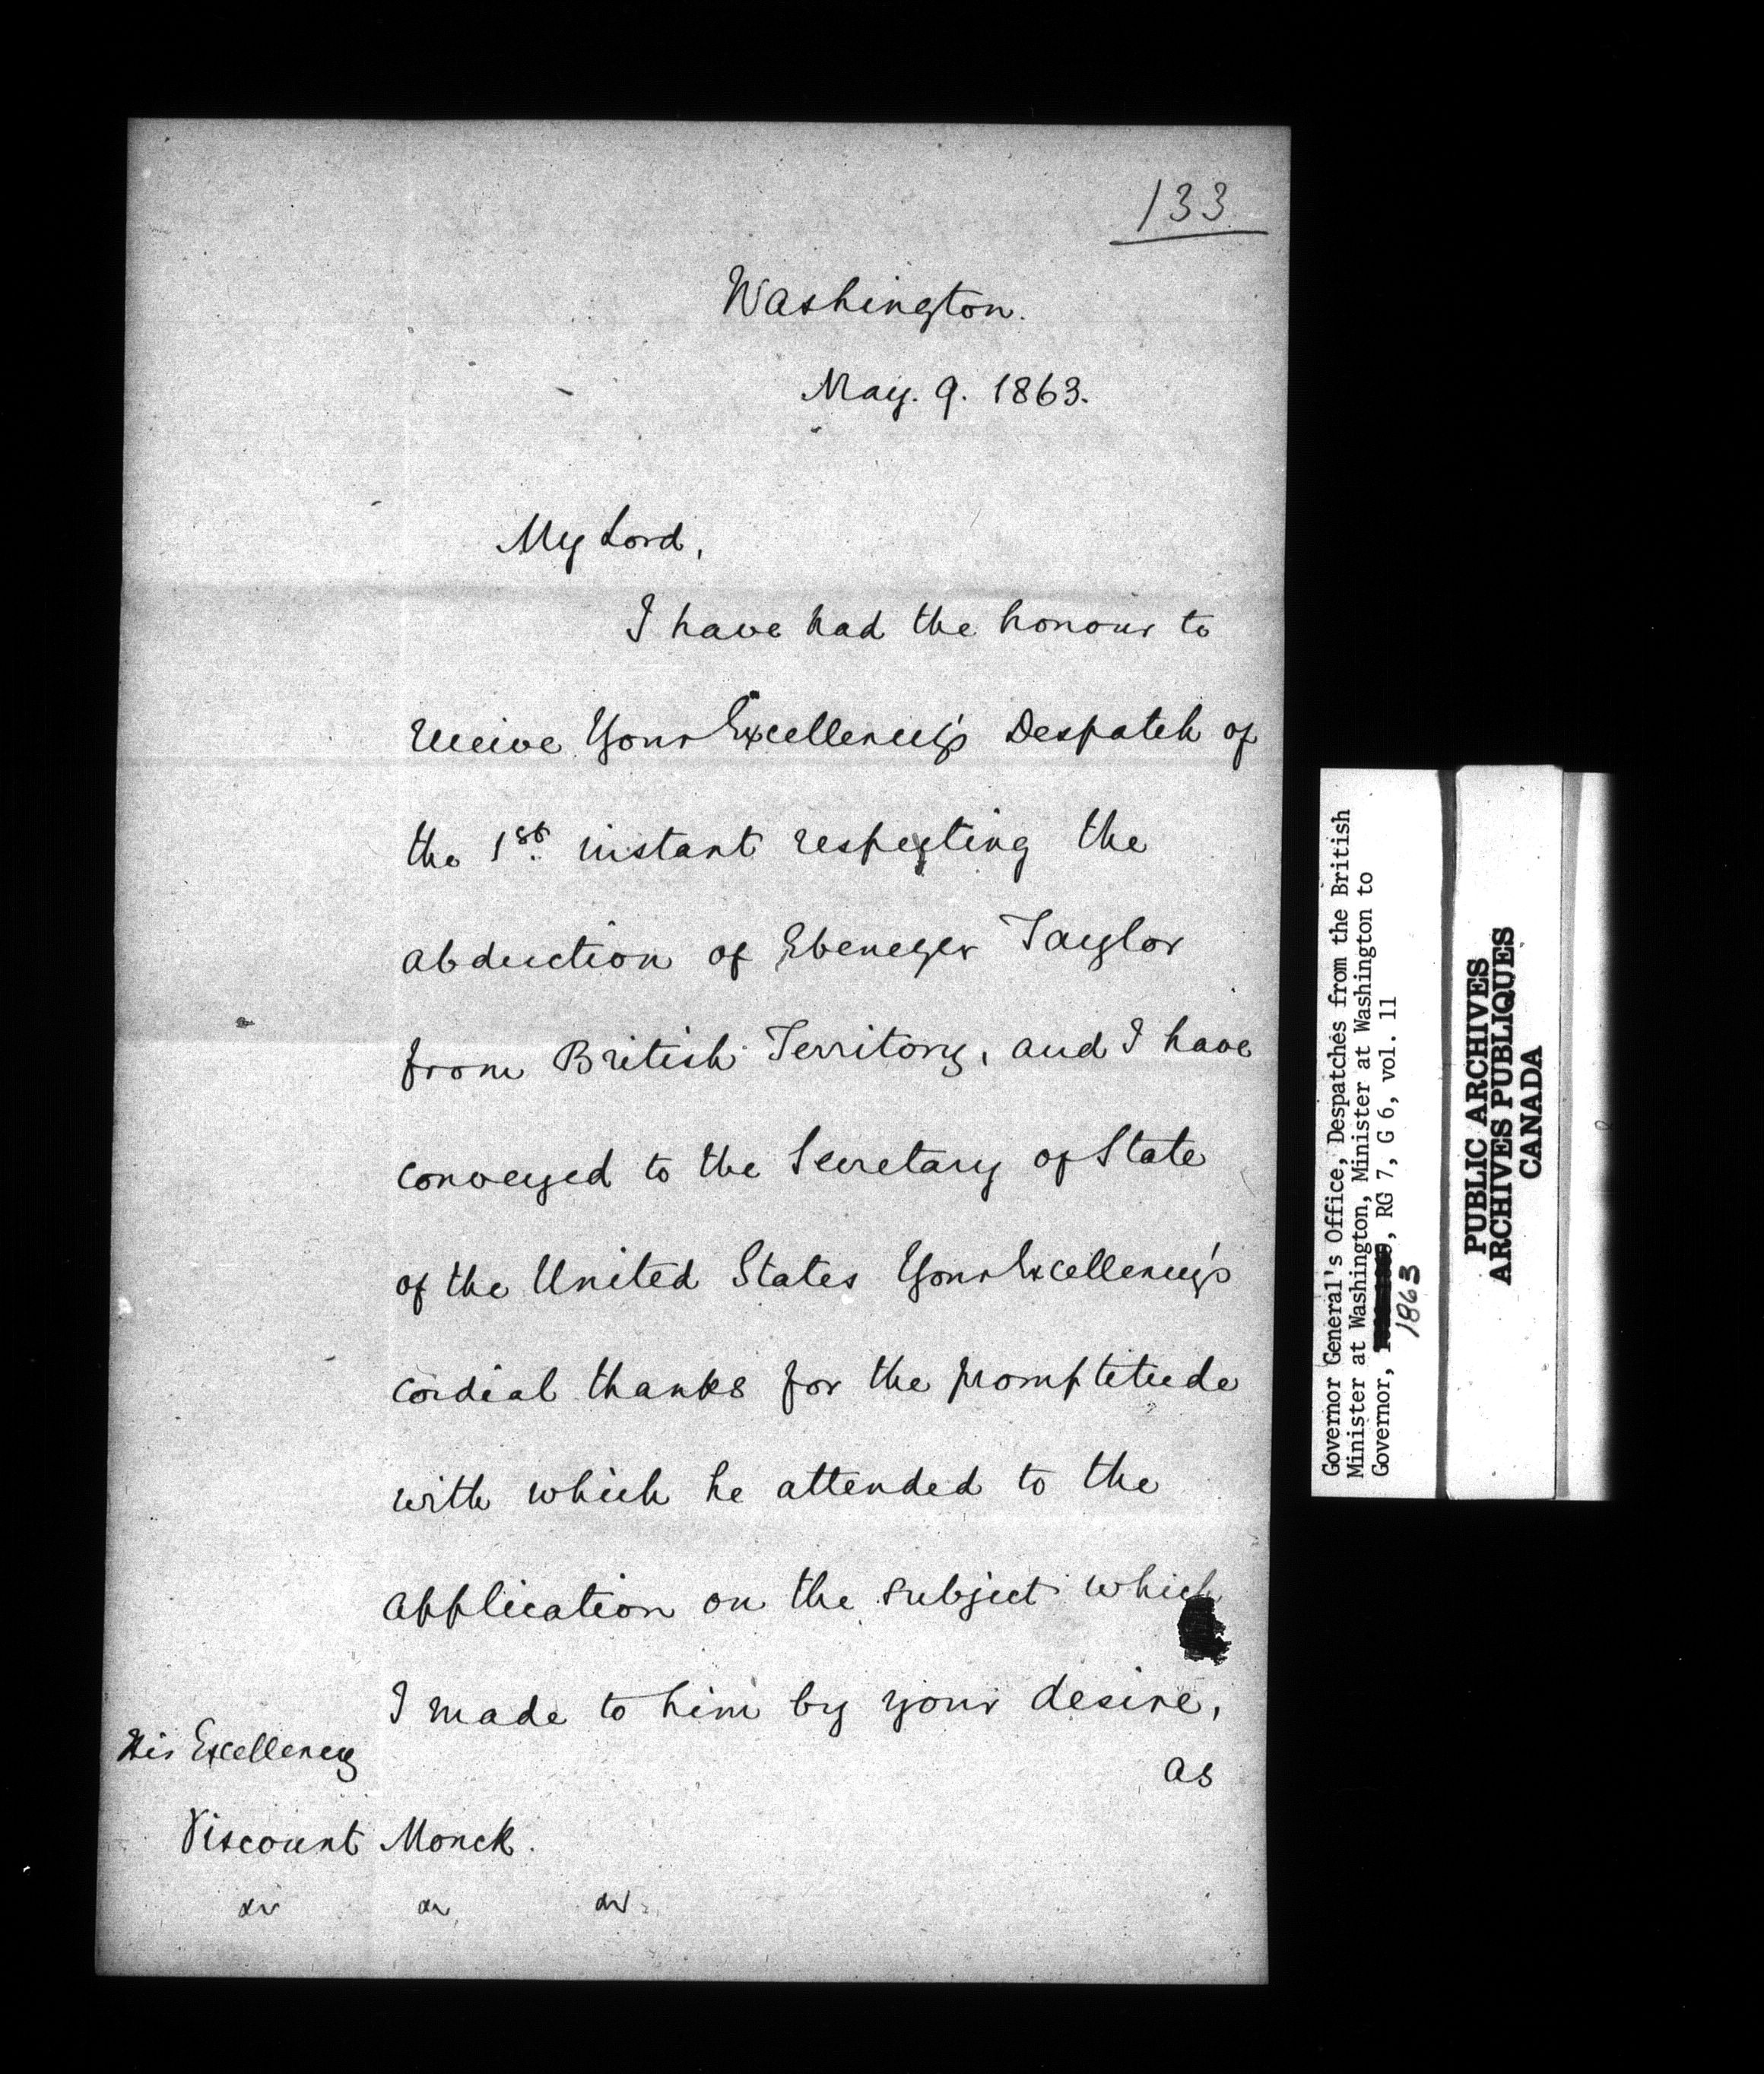 133
Washington.
May. 9. 1863.
My Lord,
I have had the honour to
receive Your Excellency's Despatch of
the 1st. instant respecting the
abduction of Ebenezer Taylor
from British Territory, and I have
conveyed to the Secretary of State
of the United States Your Excellency's
cordial thanks for the promptitude
with which he attended to the
application on the subject which
I made to him by your desire,
as
His Excellency
Viscount Monck.
&c &c &c
Governor General's Office, Despatches from the British
Minister at Washington, Minister at Washington to
Governor, , RG 7, G 6, vol. 11
1863
PUBLIC ARCHIVES
ARCHIVES PUBLIQUES
CANADA